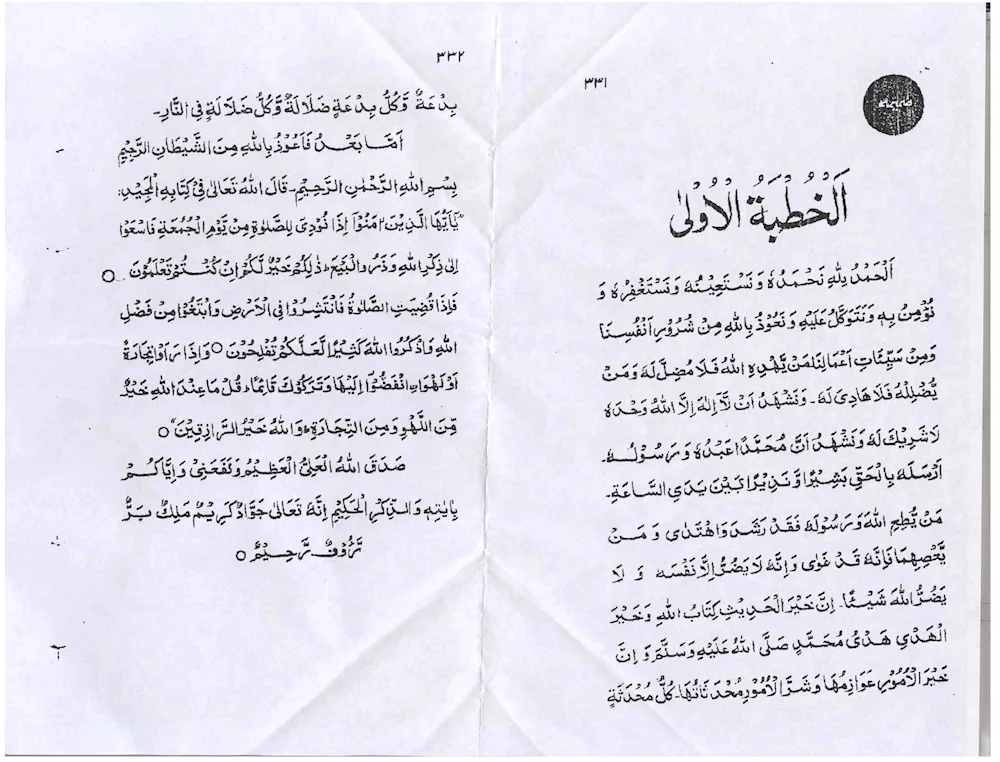 ۳۳۱
ضمیمه
اَلْخُطْبَةُ الْاُوْلٰی
اَلْحَمْدُ لِلّٰهِ نَحْمَدُهٗ وَنَسْتَعِيْنُهٗ وَنَسْتَغْفِرُهٗ وَ
نُؤْمِنُ بِهٖ وَنَتَوَكَّلُ عَلَيْهِ وَنَعُوْذُ بِاللّٰهِ مِنْ شُرُوْرِ اَنْفُسِنَا
وَمِنْ سَيِّئَاتِ اَعْمَالِنَا مَنْ يَّهْدِهِ اللّٰهُ فَلَا مُضِلَّ لَهٗ وَمَنْ
يُّضْلِلْهُ فَلَا هَادِیَ لَهٗ۔ وَنَشْهَدُ اَنْ لَّآ اِلٰهَ اِلَّا اللّٰهُ وَحْدَهٗ
لَا شَرِيْكَ لَهٗ وَنَشْهَدُ اَنَّ مُحَمَّدًا عَبْدُهٗ وَرَسُوْلُهٗ۔
اَرْسَلَهٗ بِالْحَقِّ بَشِيْرًا وَّنَذِيْرًا بَيْنَ يَدَیِ السَّاعَةِ۔
مَنْ يُّطِعِ اللّٰهَ وَرَسُوْلَهٗ فَقَدْ رَشَدَ وَاهْتَدٰی وَمَنْ
يَّعْصِهِمَا فَاِنَّهٗ قَدْ غَوٰی وَاِنَّهٗ لَا يَضُرُّ اِلَّا نَفْسَهٗ وَلَا
يَضُرُّ اللّٰهَ شَيْئًا۔ اِنَّ خَيْرَ الْحَدِيْثِ كِتَابُ اللّٰهِ وَخَيْرَ
الْهَدْیِ هَدْیُ مُحَمَّدٍ صَلَّی اللّٰهُ عَلَيْهِ وَسَلَّمَ وَاِنَّ
خَيْرَ الْاُمُوْرِ عَوَازِمُهَا وَشَرَّ الْاُمُوْرِ مُحْدَثَاتُهَا۔ كُلُّ مُحْدَثَةٍ
۳۳۲
بِدْعَةٌ وَّكُلُّ بِدْعَةٍ ضَلَالَةٌ وَّكُلُّ ضَلَالَةٍ فِی النَّارِ۔
اَمَّا بَعْدُ فَاَعُوْذُ بِاللّٰهِ مِنَ الشَّيْطَانِ الرَّجِيْمِ
بِسْمِ اللّٰهِ الرَّحْمٰنِ الرَّحِيْمِ۔ قَالَ اللّٰهُ تَعَالٰی فِیْ كِتَابِهِ الْمَجِيْدِ:
يٰٓاَيُّهَا الَّذِيْنَ اٰمَنُوْٓا اِذَا نُوْدِیَ لِلصَّلٰوةِ مِنْ يَّوْمِ الْجُمُعَةِ فَاسْعَوْا
اِلٰی ذِكْرِ اللّٰهِ وَذَرُوا الْبَيْعَ ؕ ذٰلِكُمْ خَيْرٌ لَّكُمْ اِنْ كُنْتُمْ تَعْلَمُوْنَ ○
فَاِذَا قُضِيَتِ الصَّلٰوةُ فَانْتَشِرُوْا فِی الْاَرْضِ وَابْتَغُوْا مِنْ فَضْلِ
اللّٰهِ وَاذْكُرُوا اللّٰهَ كَثِيْرًا لَّعَلَّكُمْ تُفْلِحُوْنَ ○ وَاِذَا رَاَوْا تِجَارَةً
اَوْ لَهْوَا ۨانْفَضُّوْٓا اِلَيْهَا وَتَرَكُوْكَ قَآئِمًا ؕ قُلْ مَا عِنْدَ اللّٰهِ خَيْرٌ
مِّنَ اللَّهْوِ وَمِنَ التِّجَارَةِ ؕ وَاللّٰهُ خَيْرُ الرَّازِقِيْنَ ○
صَدَقَ اللّٰهُ الْعَلِیُّ الْعَظِيْمُ وَنَفَعَنِیْ وَاِيَّاكُمْ
بِاٰيٰتِهٖ وَالذِّكْرِ الْحَكِيْمِ اِنَّهٗ تَعَالٰی جَوَّادٌ كَرِيْمٌ مَلِكٌ بَرٌّ
رَّءُوْفٌ رَّحِيْمٌ ○